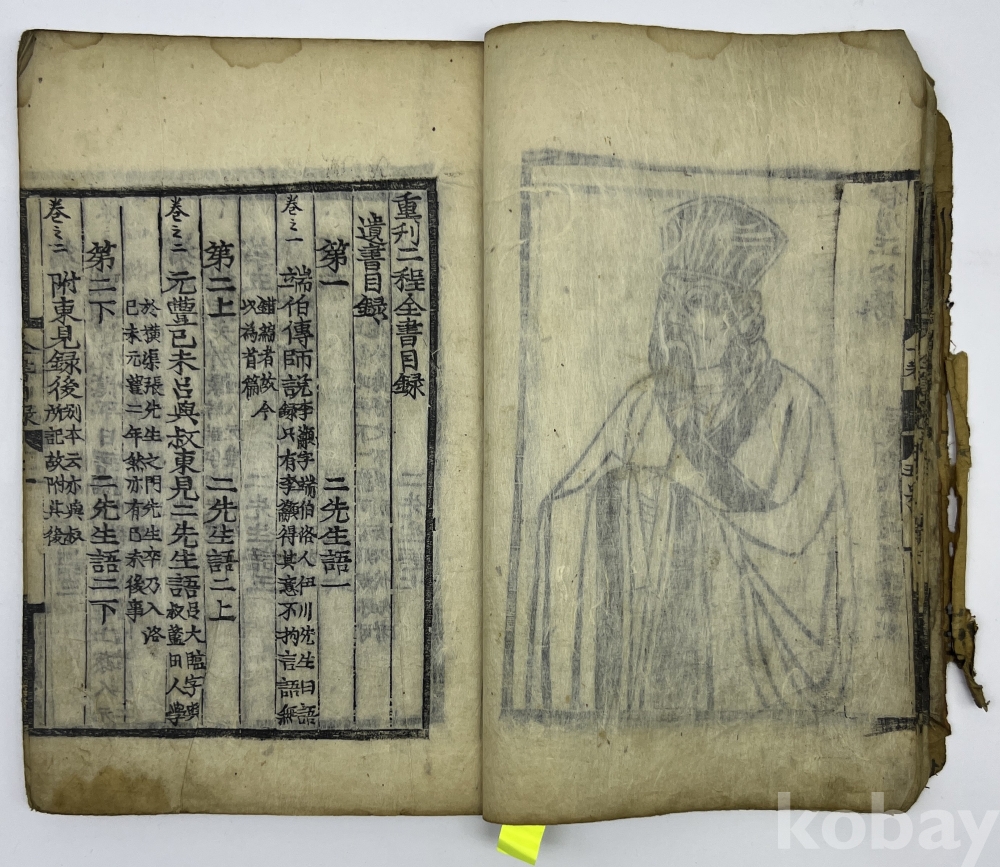 重刊二程全書目録
遺書目録
第一 二先生語一
卷之一 端伯傳師説 李籲字端伯洛人伊川先生曰語
録只有李籲得其意不拘言語無
錯編者故今
以為首篇
第二上 二先生語二上
卷之二 元豐己未呂與叔東見二先生語 呂大臨字與
叔藍田人學
於橫渠張先生之門先生卒乃入洛
己未元豐二年然亦有己未後事
第二下 二先生語二下
卷之二 附東見録後 別本云亦與叔
所記故附其後
kobay